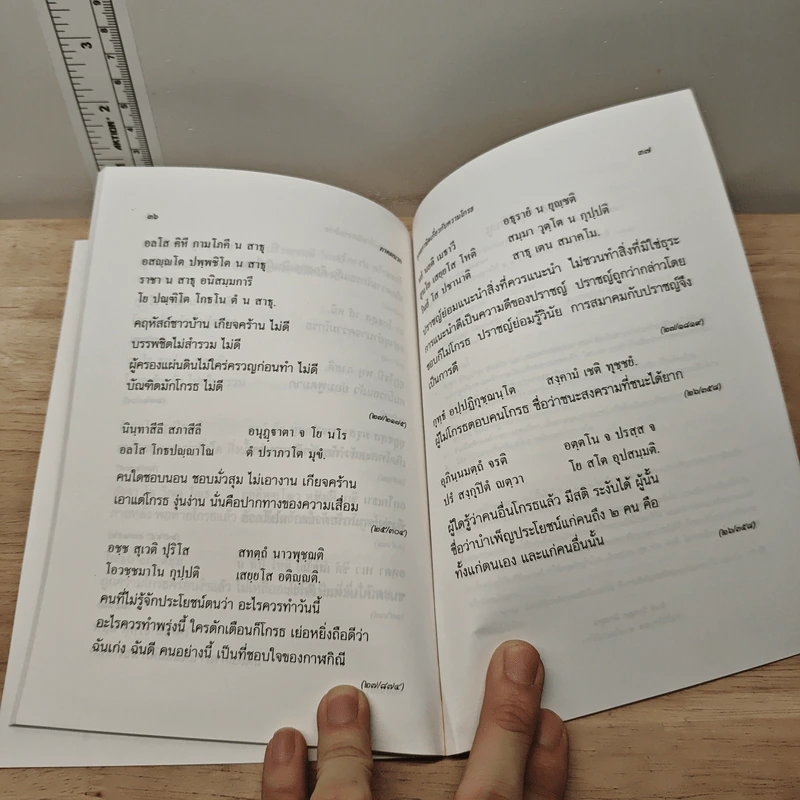 ๓๖
ภาคผนวก
อลโส คิหี กามโภคี น สาธุ
อสญฺญโต ปพฺพชิโต น สาธุ
ราชา น สาธุ อนิสมฺมการี
โย ปณฺฑิโต โกธโน ตํ น สาธุ.
คฤหัสถ์ชาวบ้าน เกียจคร้าน ไม่ดี
บรรพชิตไม่สำรวม ไม่ดี
ผู้ครองแผ่นดินไม่ใคร่ครวญก่อนทำ ไม่ดี
บัณฑิตมักโกรธ ไม่ดี
(๒๗/๒๑๗๕)
นินฺทาสีลี สภาสีลี อนุฏฺฐาตา จ โย นโร
อลโส โกธปญฺญาโณ ตํ ปราภวโต มุขํ.
คนใดชอบนอน ชอบมั่วสุม ไม่เอางาน เกียจคร้าน
เอาแต่โกรธ งุ่นง่าน นั่นคือปากทางของความเสื่อม
(๒๕/๓๐๔)
อชฺช สุเวติ ปุริโส สทตฺถํ นาวพุชฺฌติ
โอวชฺชมาโน กุปฺปติ เสยฺยโส อติญฺญติ.
คนที่ไม่รู้จักประโยชน์ตนว่า อะไรควรทำวันนี้
อะไรควรทำพรุ่งนี้ ใครตักเตือนก็โกรธ เย่อหยิ่งถือดีว่า
ฉันเก่ง ฉันดี คนอย่างนี้ เป็นที่ชอบใจของกาฬกิณี
(๒๗/๘๗๔)
๓๗
นยติ เมธาวี อธุรายํ น ยุญฺชติ
เสยฺยโส โหติ สมฺมา วุตฺโต น กุปฺปติ
โส ปชานาติ สาธุ เตน สมาคโม.
ปราชญ์ย่อมแนะนำสิ่งที่ควรแนะนำ ไม่ชวนทำสิ่งที่มิใช่ธุระ
การแนะนำดีเป็นความดีของปราชญ์ ปราชญ์ถูกว่ากล่าวโดย
ชอบก็ไม่โกรธ ปราชญ์ย่อมรู้วินัย การสมาคมกับปราชญ์จึง
เป็นการดี
(๒๗/๑๘๑๙)
กุทฺธํ อปฺปฏิกุชฺฌนฺโต สงฺคามํ เชติ ทุชฺชยํ.
ผู้ไม่โกรธตอบคนโกรธ ชื่อว่าชนะสงครามที่ชนะได้ยาก
(๒๖/๓๕๘)
อุภินฺนมตฺถํ จรติ อตฺตโน จ ปรสฺส จ
ปรํ สงฺกุปิตํ ญตฺวา โย สโต อุปสมฺมติ.
ผู้ใดรู้ว่าคนอื่นโกรธแล้ว มีสติ ระงับได้ ผู้นั้น
ชื่อว่าบำเพ็ญประโยชน์แก่คนถึง ๒ คน คือ
ทั้งแก่ตนเอง และแก่คนอื่นนั้น
(๒๖/๓๕๘)
3
2
AKTION